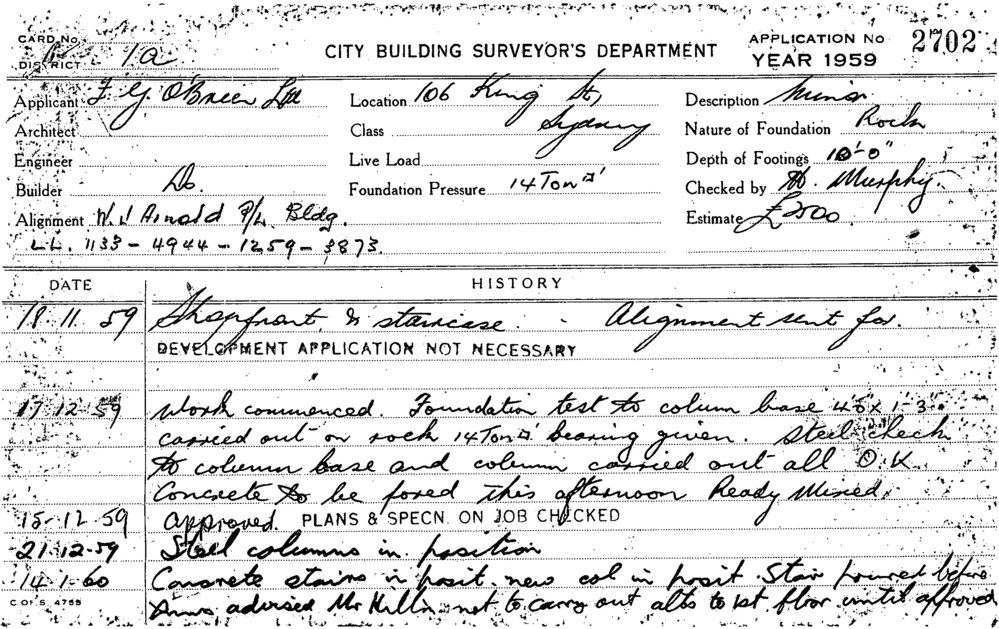 CARD No
DISTRICT 1a
CITY BUILDING SURVEYOR'S DEPARTMENT
APPLICATION No 2702
YEAR 1959
Applicant F. G. O'Brien Ltd
Location 106 King St,
Sydney
Description Minor
Architect
Class
Nature of Foundation Rock
Engineer
Live Load
Depth of Footings 10'-0"
Builder Do.
Foundation Pressure 14 Ton □'
Checked by H. Murphy.
Alignment W. J Arnold P/L. Bldg.
Estimate £2500
LL. 1133 - 4944 - 1259 - 3873.
DATE HISTORY
18 11 59 Shopfront & staircase. - Alignment sent for.
DEVELOPMENT APPLICATION NOT NECESSARY
17 12 59 Work commenced. Foundation test to column base 4-0 x 1-3
carried out on rock 14 Ton □' bearing given. Steel check
to column base and column carried out all O.K.
Concrete to be pored this afternoon Ready Mixed.
15-12-59 Approved. PLANS & SPECN. ON JOB CHECKED
21.12.59 Steel columns in position
14-1-60 Concrete stairs in posit. new col in posit. Stair poured before
C OF S. 4755
advised Mr not to carry out alts to 1st floor until approved